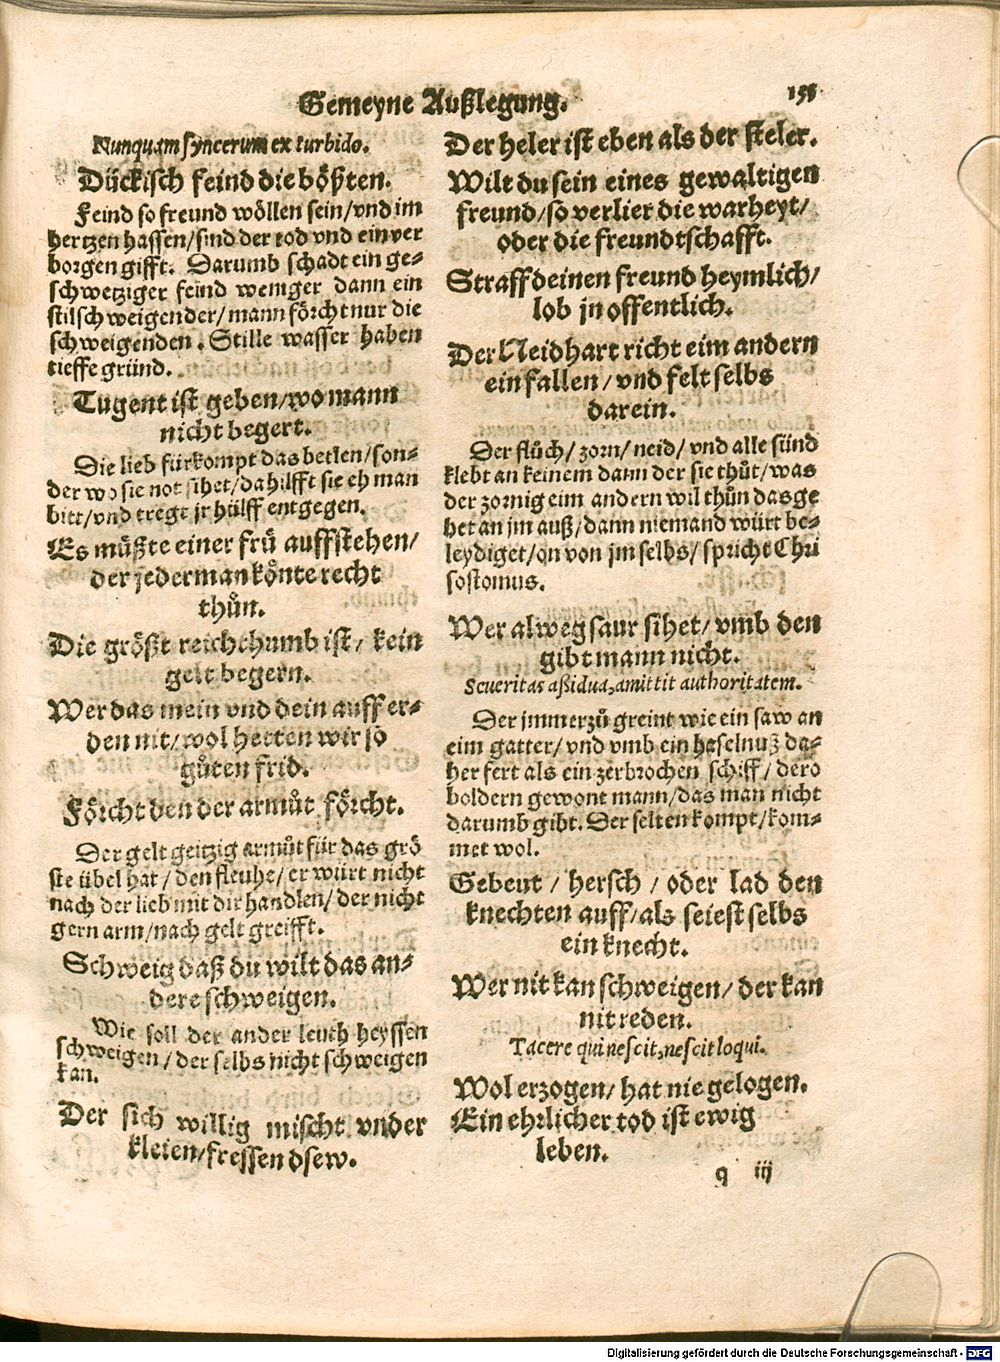 Gemeyne Außlegung.
155
Nunquam syncerum ex turbido.
Dückisch feind die bößten.
Feind so freund wöllen sein/vnd im
hertzen hassen/sind der tod vnd ein ver
borgen gifft. Darumb schadt ein ge-
schwetziger feind weniger dann ein
stilschweigender/mann förcht nur die
schweigenden. Stille wasser haben
tieffe gründ.
Tugent ist geben/wo mann
nicht begert.
Die lieb fürkompt das betlen/son-
der wo sie not sihet/da hilfft sie eh man
bitt/vnd tregt jr hülff entgegen.
Es müßte einer frü auffstehen/
der jederman könte recht
thůn.
Die größt reichthumb ist/ kein
gelt begern.
Wer das mein vnd dein auff er-
den nit/wol hetten wir so
gůten frid.
Förcht den der armůt förcht.
Der gelt geitzig armůt für das grö
ste übel hat/den fleuhe/er würt nicht
nach der lieb mit dir handlen/der nicht
gern arm/nach gelt greifft.
Schweig daß du wilt das an-
dere schweigen.
Wie soll der ander leuth heyssen
schweigen/der selbs nicht schweigen
kan.
Der sich willig mischt vnder
kleien/fressen dsew.
Der heler ist eben als der steler.
Wilt du sein eines gewaltigen
freund/so verlier die warheyt/
oder die freundtschafft.
Straff deinen freund heymlich/
lob jn offentlich.
Der Neidhart richt eim andern
ein fallen/vnd felt selbs
darein.
Der flůch/zorn/neid/vnd alle sünd
klebt an keinem dann der sie thůt/was
der zornig eim andern wil thůn das ge
het an jm auß/dann niemand würt be-
leydiget/on von jm selbs/spricht Chri
sostomus.
Wer alweg saur sihet/vmb den
gibt mann nicht.
Seueritas aßidua, amittit authoritatem.
Der jmmerzů greint wie ein saw an
eim gatter/vnd vmb ein haselnuß da-
her fert als ein zerbrochen schiff/dero
boldern gewont mann/das man nicht
darumb gibt. Der selten kompt/kom-
met wol.
Gebeut/ hersch/oder lad den
knechten auff/als seiest selbs
ein knecht.
Wer nit kan schweigen/der kan
nit reden.
Tacere qui nescit, nescit loqui.
Wol erzogen/hat nie gelogen.
Ein ehrlicher tod ist ewig
leben.
q iij
Digitalisierung gefördert durch die Deutsche Forschungsgemeinschaft - DFG